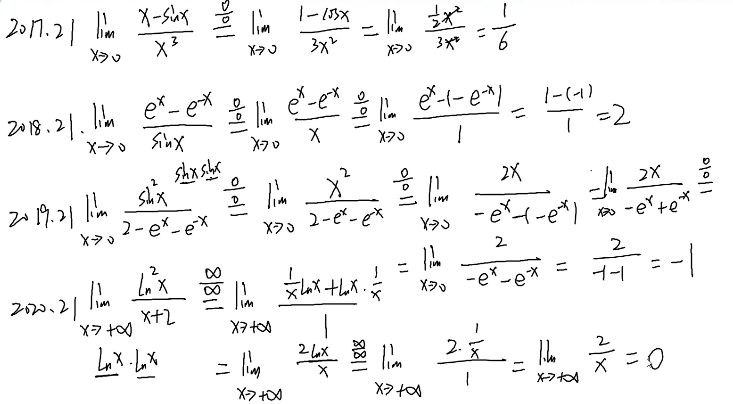 2017.21 lim x→0 (x-sinx)/x³ =(0/0) lim x→0 (1-cosx)/3x² = lim x→0 (½x²)/3x² = 1/6
2018.21. lim x→0 (eˣ-e⁻ˣ)/sinx =(0/0) lim x→0 (eˣ-e⁻ˣ)/x =(0/0) lim x→0 (eˣ-(-e⁻ˣ))/1 = (1-(-1))/1 = 2
sinx sinx
2019.21 lim x→0 sin²x/(2-eˣ-e⁻ˣ) =(0/0) lim x→0 x²/(2-eˣ-e⁻ˣ) =(0/0) lim x→0 2x/(-eˣ-(-e⁻ˣ)) = lim x→0 2x/(-eˣ+e⁻ˣ) =(0/0)
= lim x→0 2/(-eˣ-e⁻ˣ) = 2/(-1-1) = -1
2020.21 lim x→+∞ ln²x/(x+2) =(∞/∞) lim x→+∞ (1/x lnx+lnx·1/x)/1
lnx·lnx = lim x→+∞ 2lnx/x =(∞/∞) lim x→+∞ (2·1/x)/1 = lim x→+∞ 2/x = 0